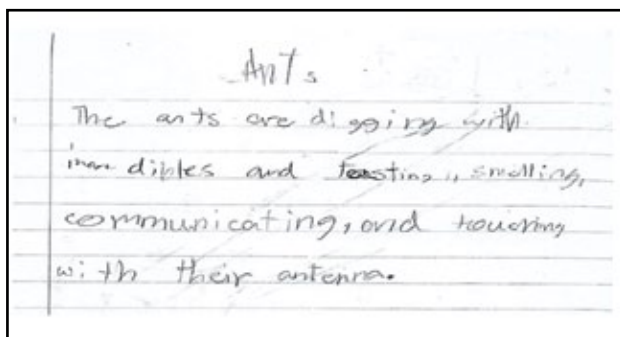 Ants
The ants are digging with
mandibles and teasting, smelling,
communicating, and touching
with their antenna.